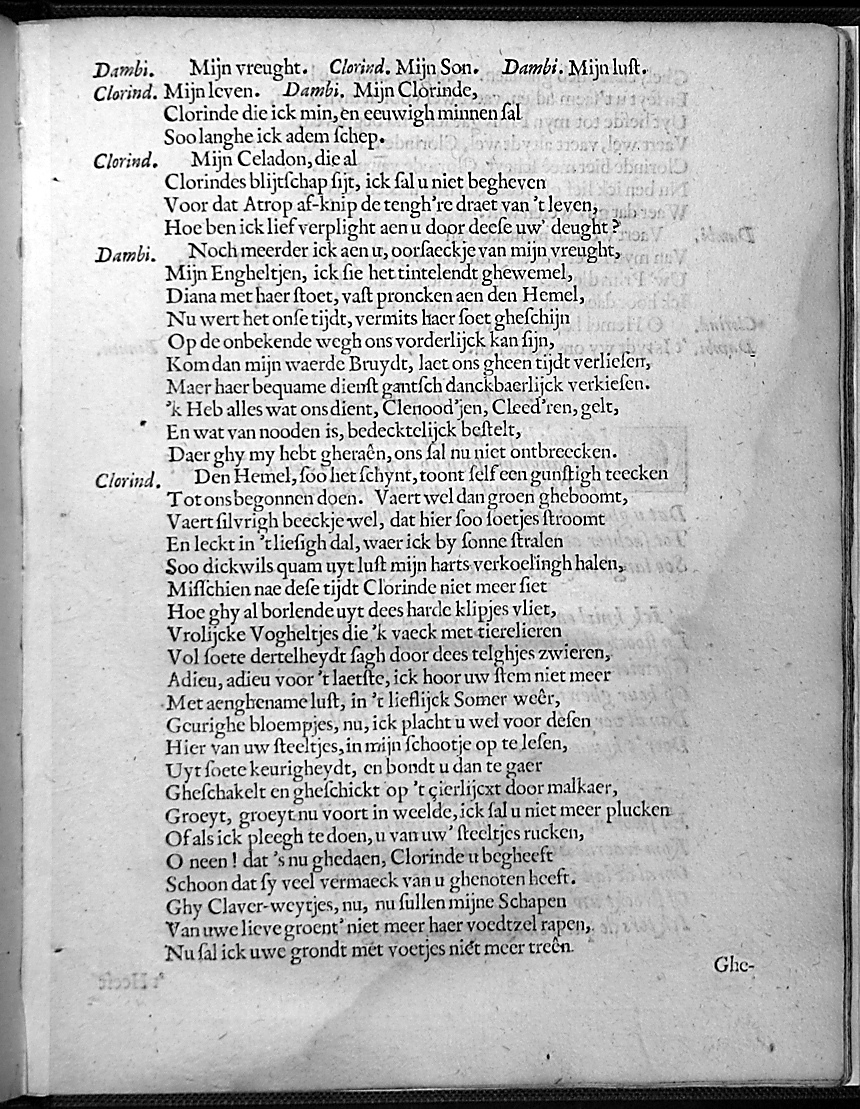 Dambi. Mijn vreught. Clorind. Mijn Son. Dambi. Mijn lust.
Clorind. Mijn leven. Dambi. Mijn Clorinde,
Clorinde die ick min, en eeuwigh minnen sal
Soo langhe ick adem schep.
Clorind. Mijn Celadon, die al
Clorindes blijtschap sijt, ick sal u niet begheven
Voor dat Atrop af-knip de tengh're draet van 't leven,
Hoe ben ick lief verplight aen u door deese uw' deught?
Dambi. Noch meerder ick aen u, oorsaeckje van mijn vreught,
Mijn Engheltjen, ick sie het tintelendt ghewemel,
Diana met haer stoet, vast proncken aen den Hemel,
Nu wert het onse tijdt, vermits haer soet gheschijn
Op de onbekende wegh ons vorderlijck kan sijn,
Kom dan mijn waerde Bruydt, laet ons gheen tijdt verliesen,
Maer haer bequame dienst gantsch danckbaerlijck verkiesen.
'k Heb alles wat ons dient, Clenood'jen, Cleed'ren, gelt,
En wat van nooden is, bedecktelijck bestelt,
Daer ghy my hebt gheraên, ons sal nu niet ontbreecken.
Clorind. Den Hemel, soo het schynt, toont self een gunstigh teecken
Tot ons begonnen doen. Vaert wel dan groen gheboomt,
Vaert silvrigh beeckje wel, dat hier soo soetjes stroomt
En leckt in 't liesigh dal, waer ick by sonne stralen
Soo dickwils quam uyt lust mijn harts verkoelingh halen,
Misschien nae dese tijdt Clorinde niet meer siet
Hoe ghy al borlende uyt dees harde klipjes vliet,
Vrolijcke Vogheltjes die 'k vaeck met tierelieren
Vol soete dertelheydt sagh door dees telghjes zwieren,
Adieu, adieu voor 't laetste, ick hoor uw stem niet meer
Met aenghename lust, in 't lieflijck Somer weêr,
Geurighe bloempjes, nu, ick placht u wel voor desen
Hier van uw steeltjes, in mijn schootje op te lesen,
Uyt soete keurigheydt, en bondt u dan te gaer
Gheschakelt en gheschickt op 't çierlijcxt door malkaer,
Groeyt, groeyt nu voort in weelde, ick sal u niet meer plucken
Of als ick pleegh te doen, u van uw' steeltjes rucken,
O neen! dat 's nu ghedaen, Clorinde u begheeft
Schoon dat sy veel vermaeck van u ghenoten heeft.
Ghy Claver-weytjes, nu, nu sullen mijne Schapen
Van uwe lieve groent' niet meer haer voedtzel rapen,
Nu sal ick uwe grondt met voetjes niet meer treên.
Ghe-